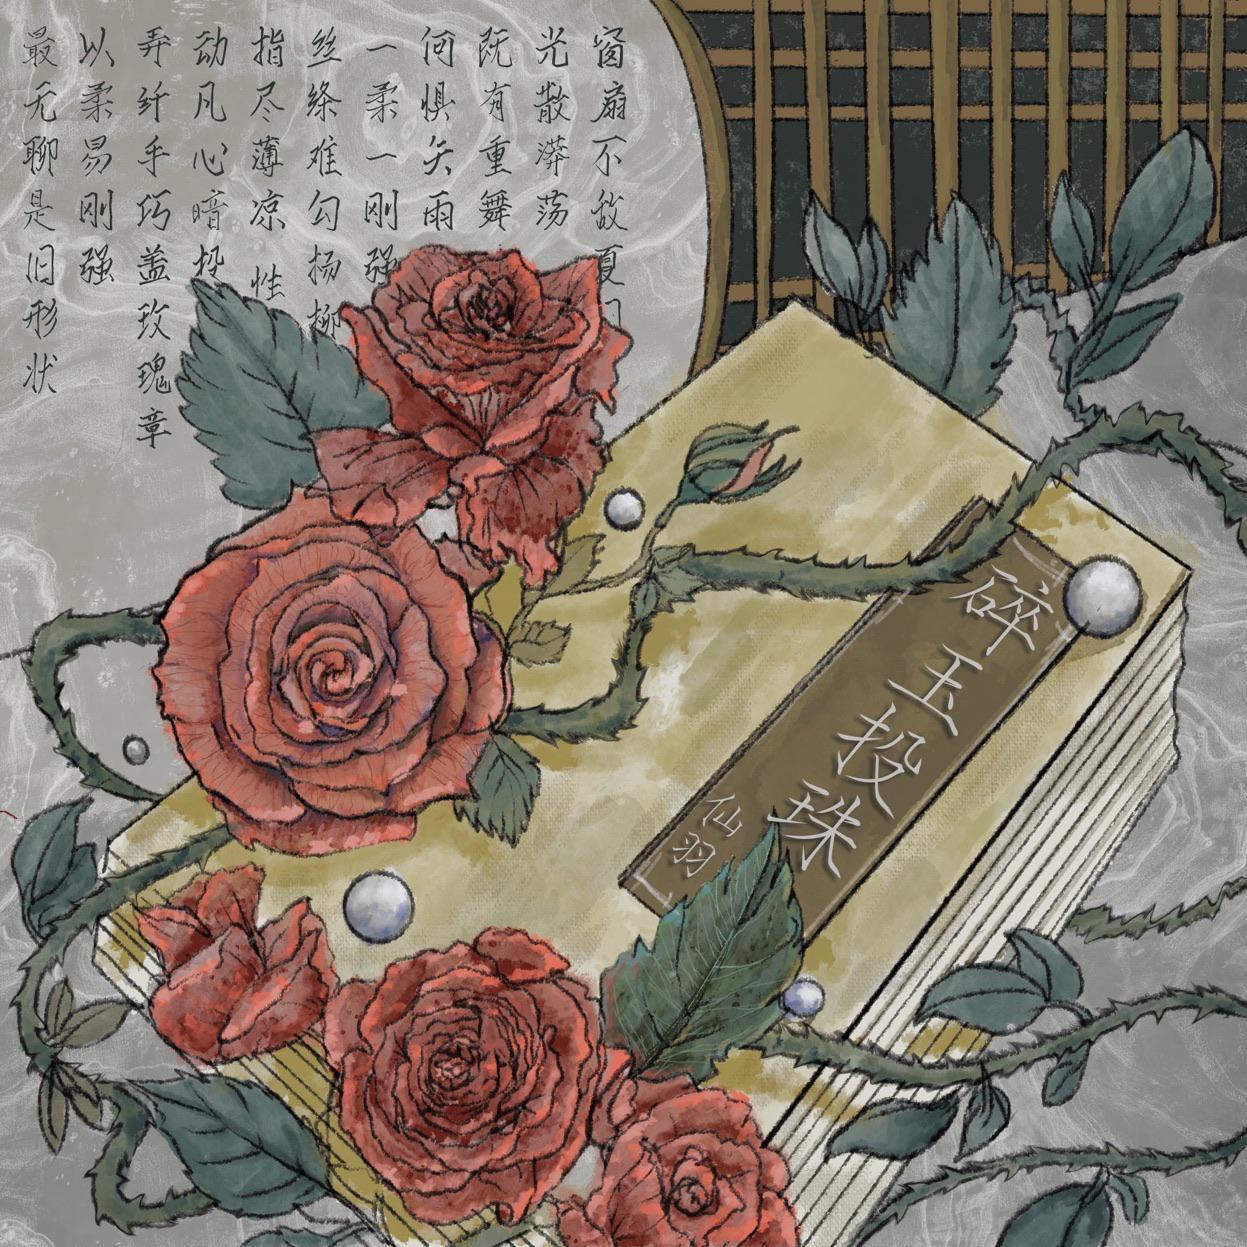 窗扇不敌夏
光散漭荡
既有重舞
何惧矢雨
一柔一刚强
丝绦难勾扬柳
指尽薄凉 性
动凡心暗投
弄纤手巧盖玫瑰章
以柔易刚强
最无聊是旧形状
碎玉投珠
仙羽